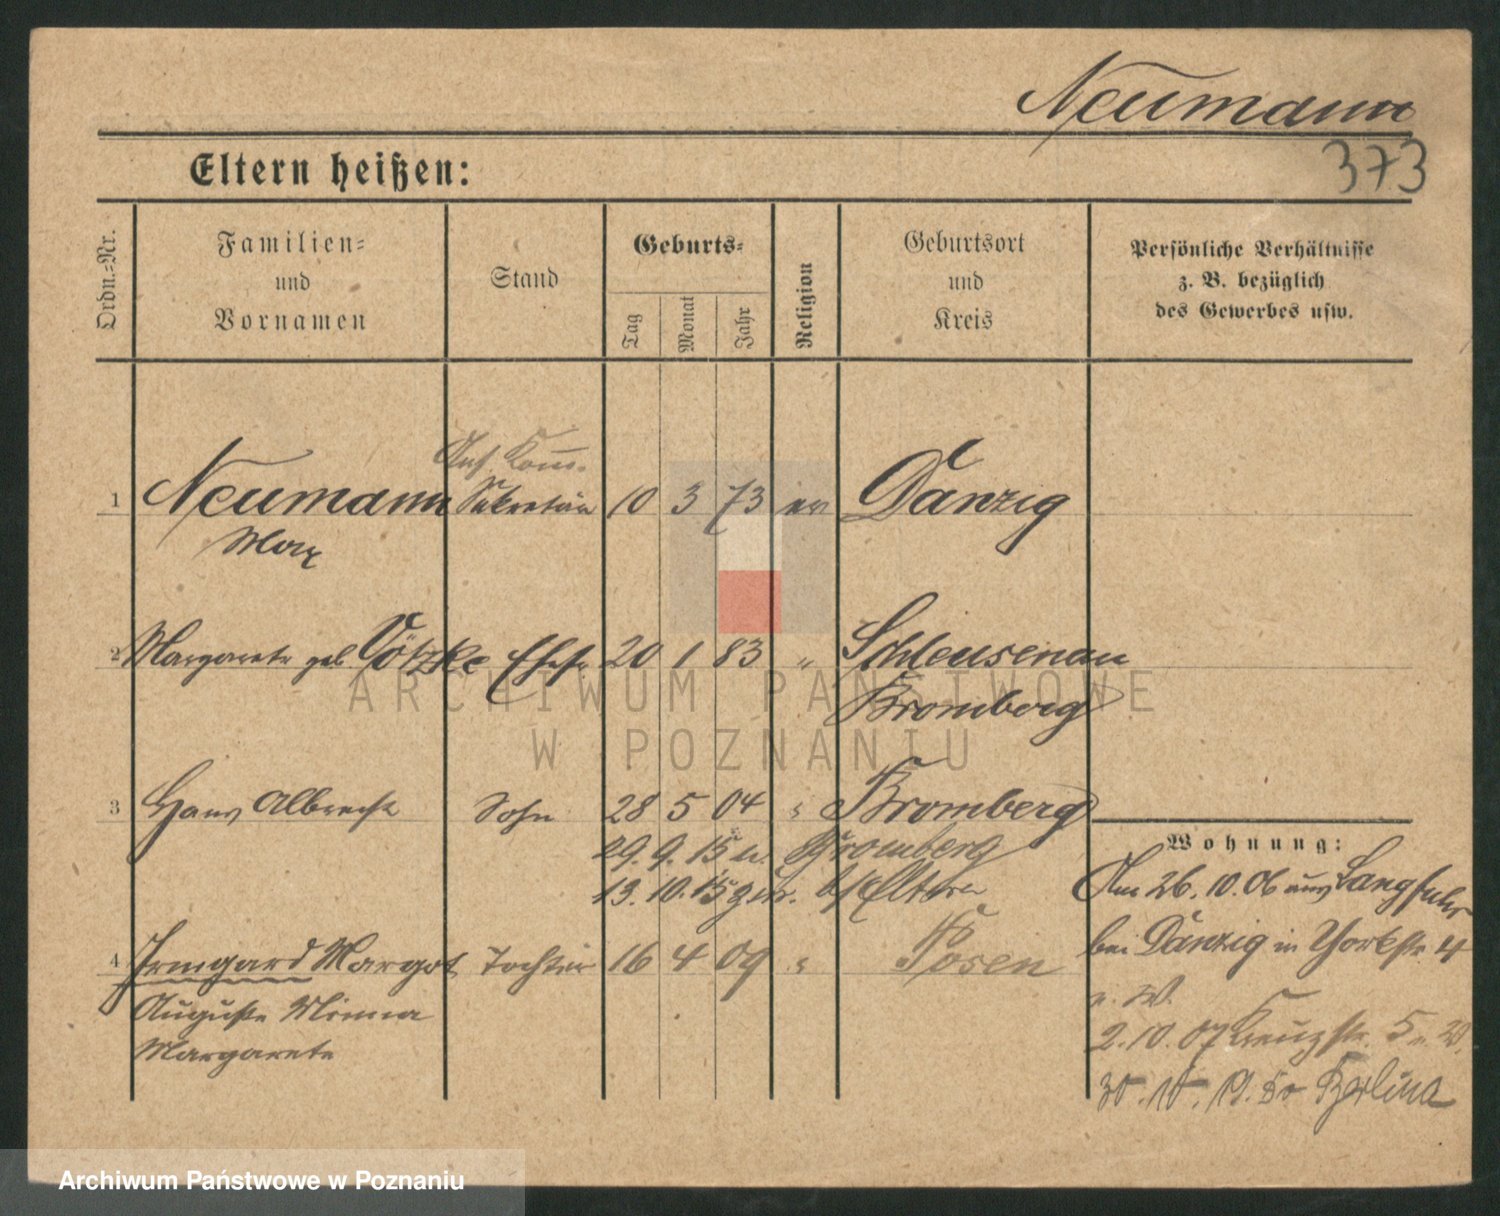 Neumann
373
Eltern heißen:
Ordn.-Nr.
Familien-
und
Vornamen
Stand
Geburts-
Tag
Monat
Jahr
Religion
Geburtsort
und
Kreis
Persönliche Verhältnisse
z. B. bezüglich
des Gewerbes usw.
1 Neumann Sekretär 10 3 73 ev Danzig
Max
2 Margarete geb Vötzke Ehefr 20 1 83 " Schleusenau
Bromberg
3 Hans Albrecht Sohn 28 5 04 " Bromberg
29. 9. 15 n. Bromberg
13. 10. 15 zur. b/Eltern
4 Irmgard Margot Tochter 16 4 09 " Posen
Auguste Minna
Margarete
Wohnung:
Am 26. 10. 06 aus Langfuhr
bei Danzig in Yorkstr 4
v. W.
2. 10. 07 Kreuzstr. 5 v. W.
30. 10. 19. do Berlina
ARCHIWUM PAŃSTWOWE
W POZNANIU
Archiwum Państwowe w Poznaniu